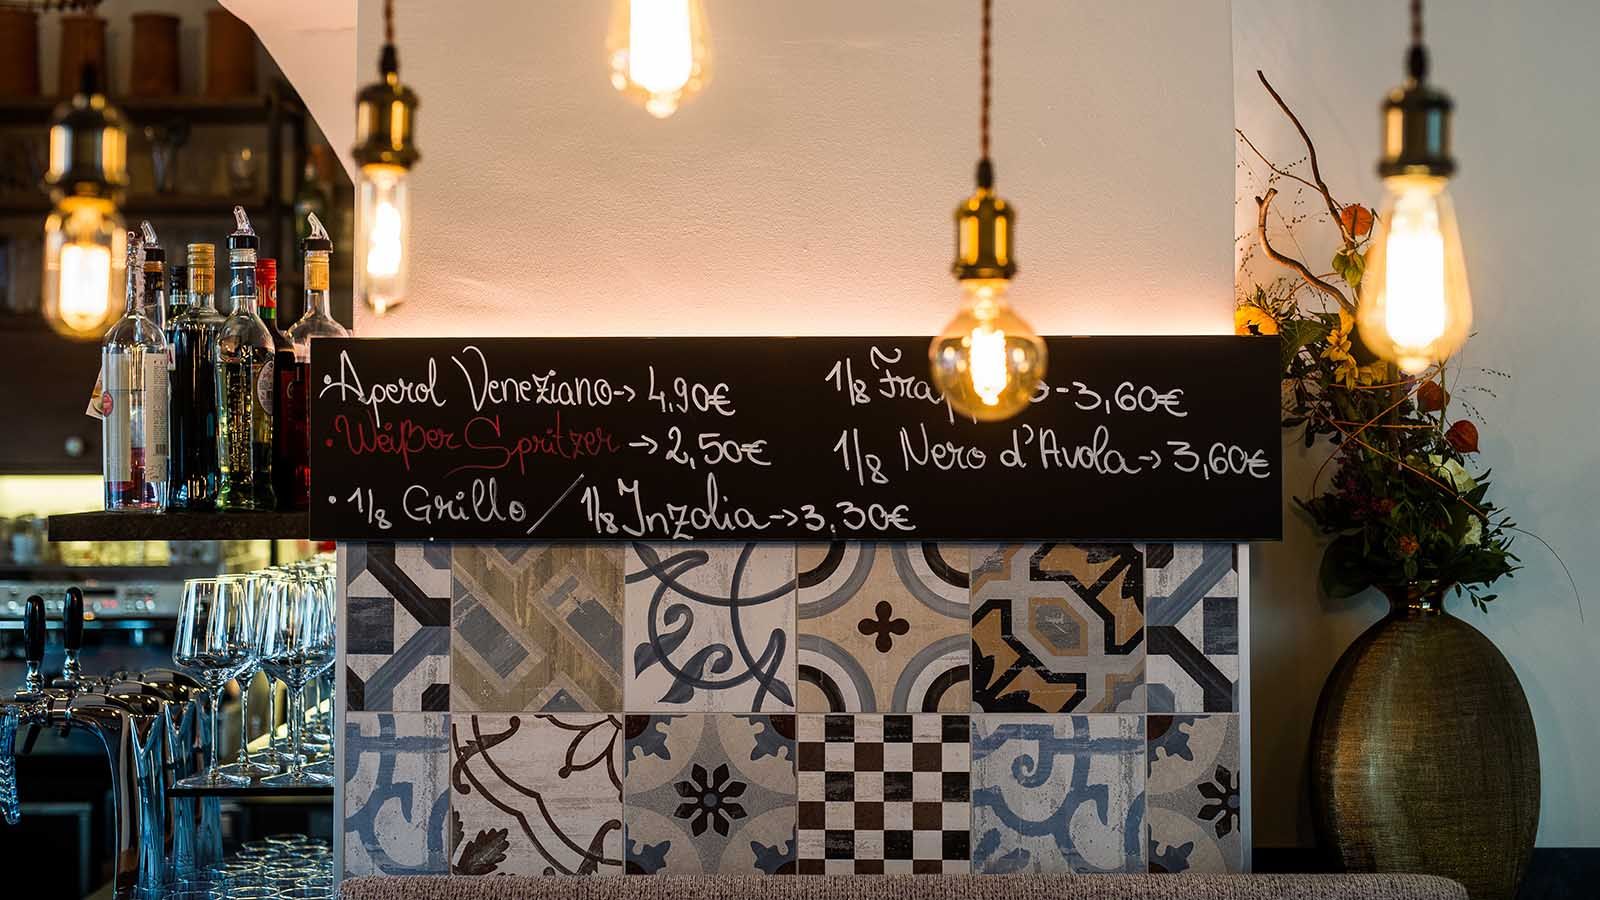 ·Aperol Veneziano→ 4,90€
·Weißer Spritzer →2,50€
·1/8 Grillo / 1/8 Inzolia→3,30€
1/8 -3,60€
1/8 Nero d'Avola→3,60€